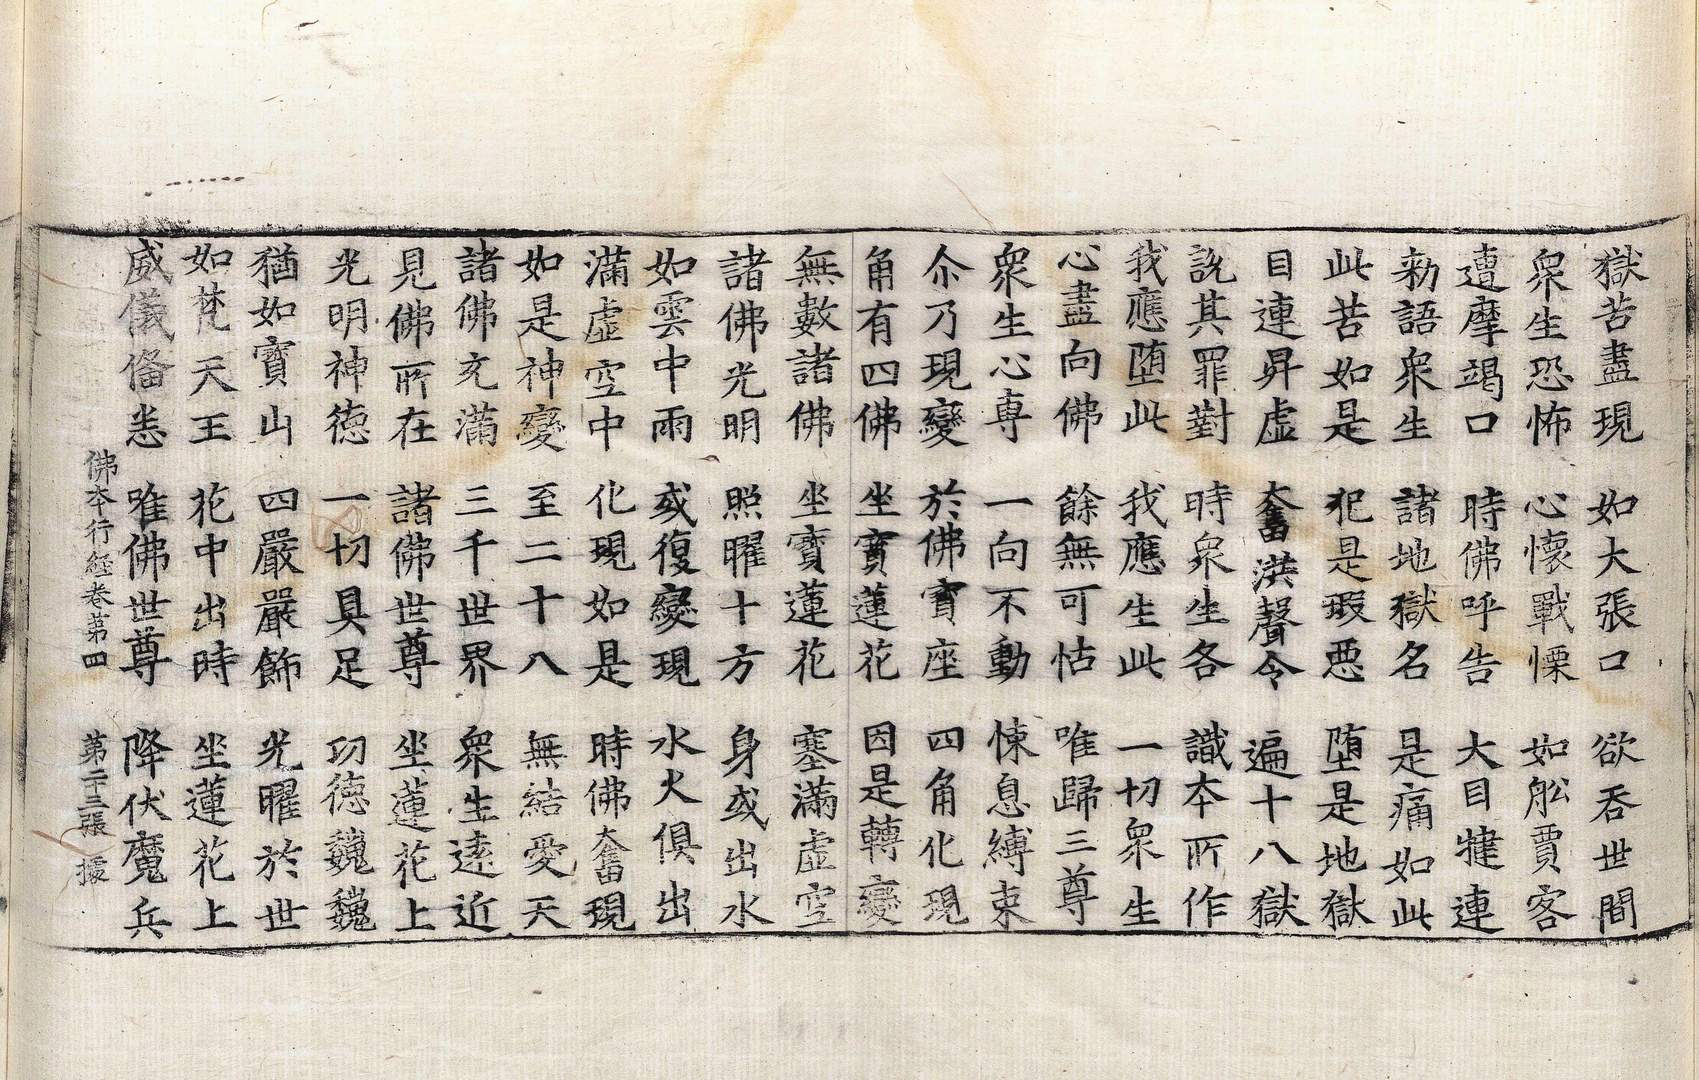 獄苦盡現 如大張口 欲吞世間
衆生恐怖 心懷戰慄 如舩賈客
遭摩竭口 時佛呼告 大目揵連
勑語衆生 諸地獄名 是痛如此
此苦如是 犯是瑕惡 墮是地獄
目連昇虛 奮洪聲令 遍十八獄
說其罪對 時衆生各 識本所作
我應墮此 我應生此 一切衆生
心盡向佛 餘無可怙 唯歸三尊
衆生心専 一向不動 悚息縛束
尒乃現變 於佛寶座 四角化現
角有四佛 坐寶蓮花 因是轉變
無數諸佛 坐寶蓮花 塞滿虛空
諸佛光明 照曜十方 身或出水
如雲中雨 或復變現 水火俱出
滿虛空中 化現如是 時佛奮現
如是神變 至二十八 無結愛天
諸佛充滿 三千世界 衆生遠近
見佛所在 諸佛世尊 坐蓮花上
光明神德 一切具足 功德巍巍
猶如寶山 四嚴嚴飾 光曜於世
如梵天王 花中出時 坐蓮花上
威儀俻悉 唯佛世尊 降伏魔兵
佛本行經卷第四 第二十三張 據